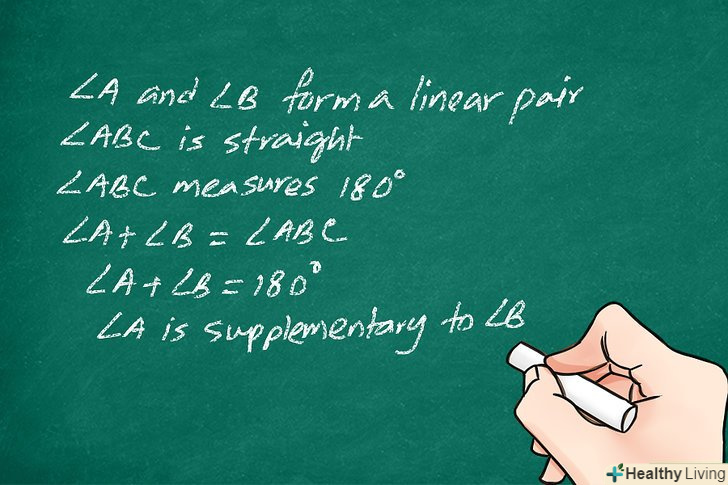 ∠A and ∠B form a linear pair
∠ABC is straight
∠ABC measures 180°
∠A + ∠B = ∠ABC
∠A + ∠B = 180°
∠A is supplementary to ∠B
Healthy Living